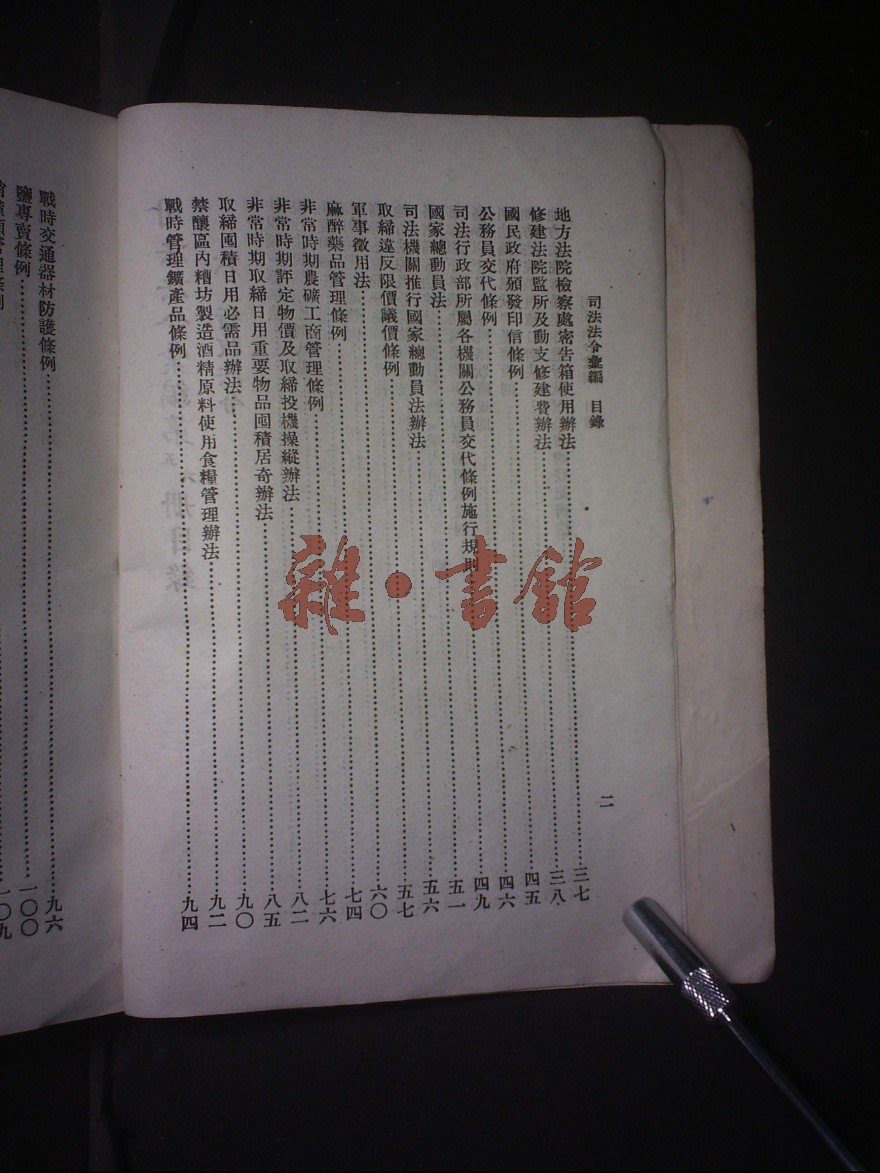 司法法令彙編　目錄　二
地方法院檢察處密告箱使用辦法……三七
修建法院監所及動支修建費辦法……三八
國民政府頒發印信條例……四五
公務員交代條例……四六
司法行政部所屬各機關公務員交代條例施行規則……四九
國家總動員法……五一
司法機關推行國家總動員法辦法……五六
取締違反限價議價條例……五七
軍事徵用法……六〇
麻醉藥品管理條例……七四
非常時期農礦工商管理條例……七六
非常時期評定物價及取締投機操縱辦法……八二
非常時期取締日用重要物品囤積居奇辦法……八五
取締囤積日用必需品辦法……九〇
禁釀區內糟坊製造酒精原料使用食糧管理辦法……九二
戰時管理鑛產品條例……九四
戰時交通器材防護條例……九六
鹽專賣條例……一〇〇
一〇九
雜·書館